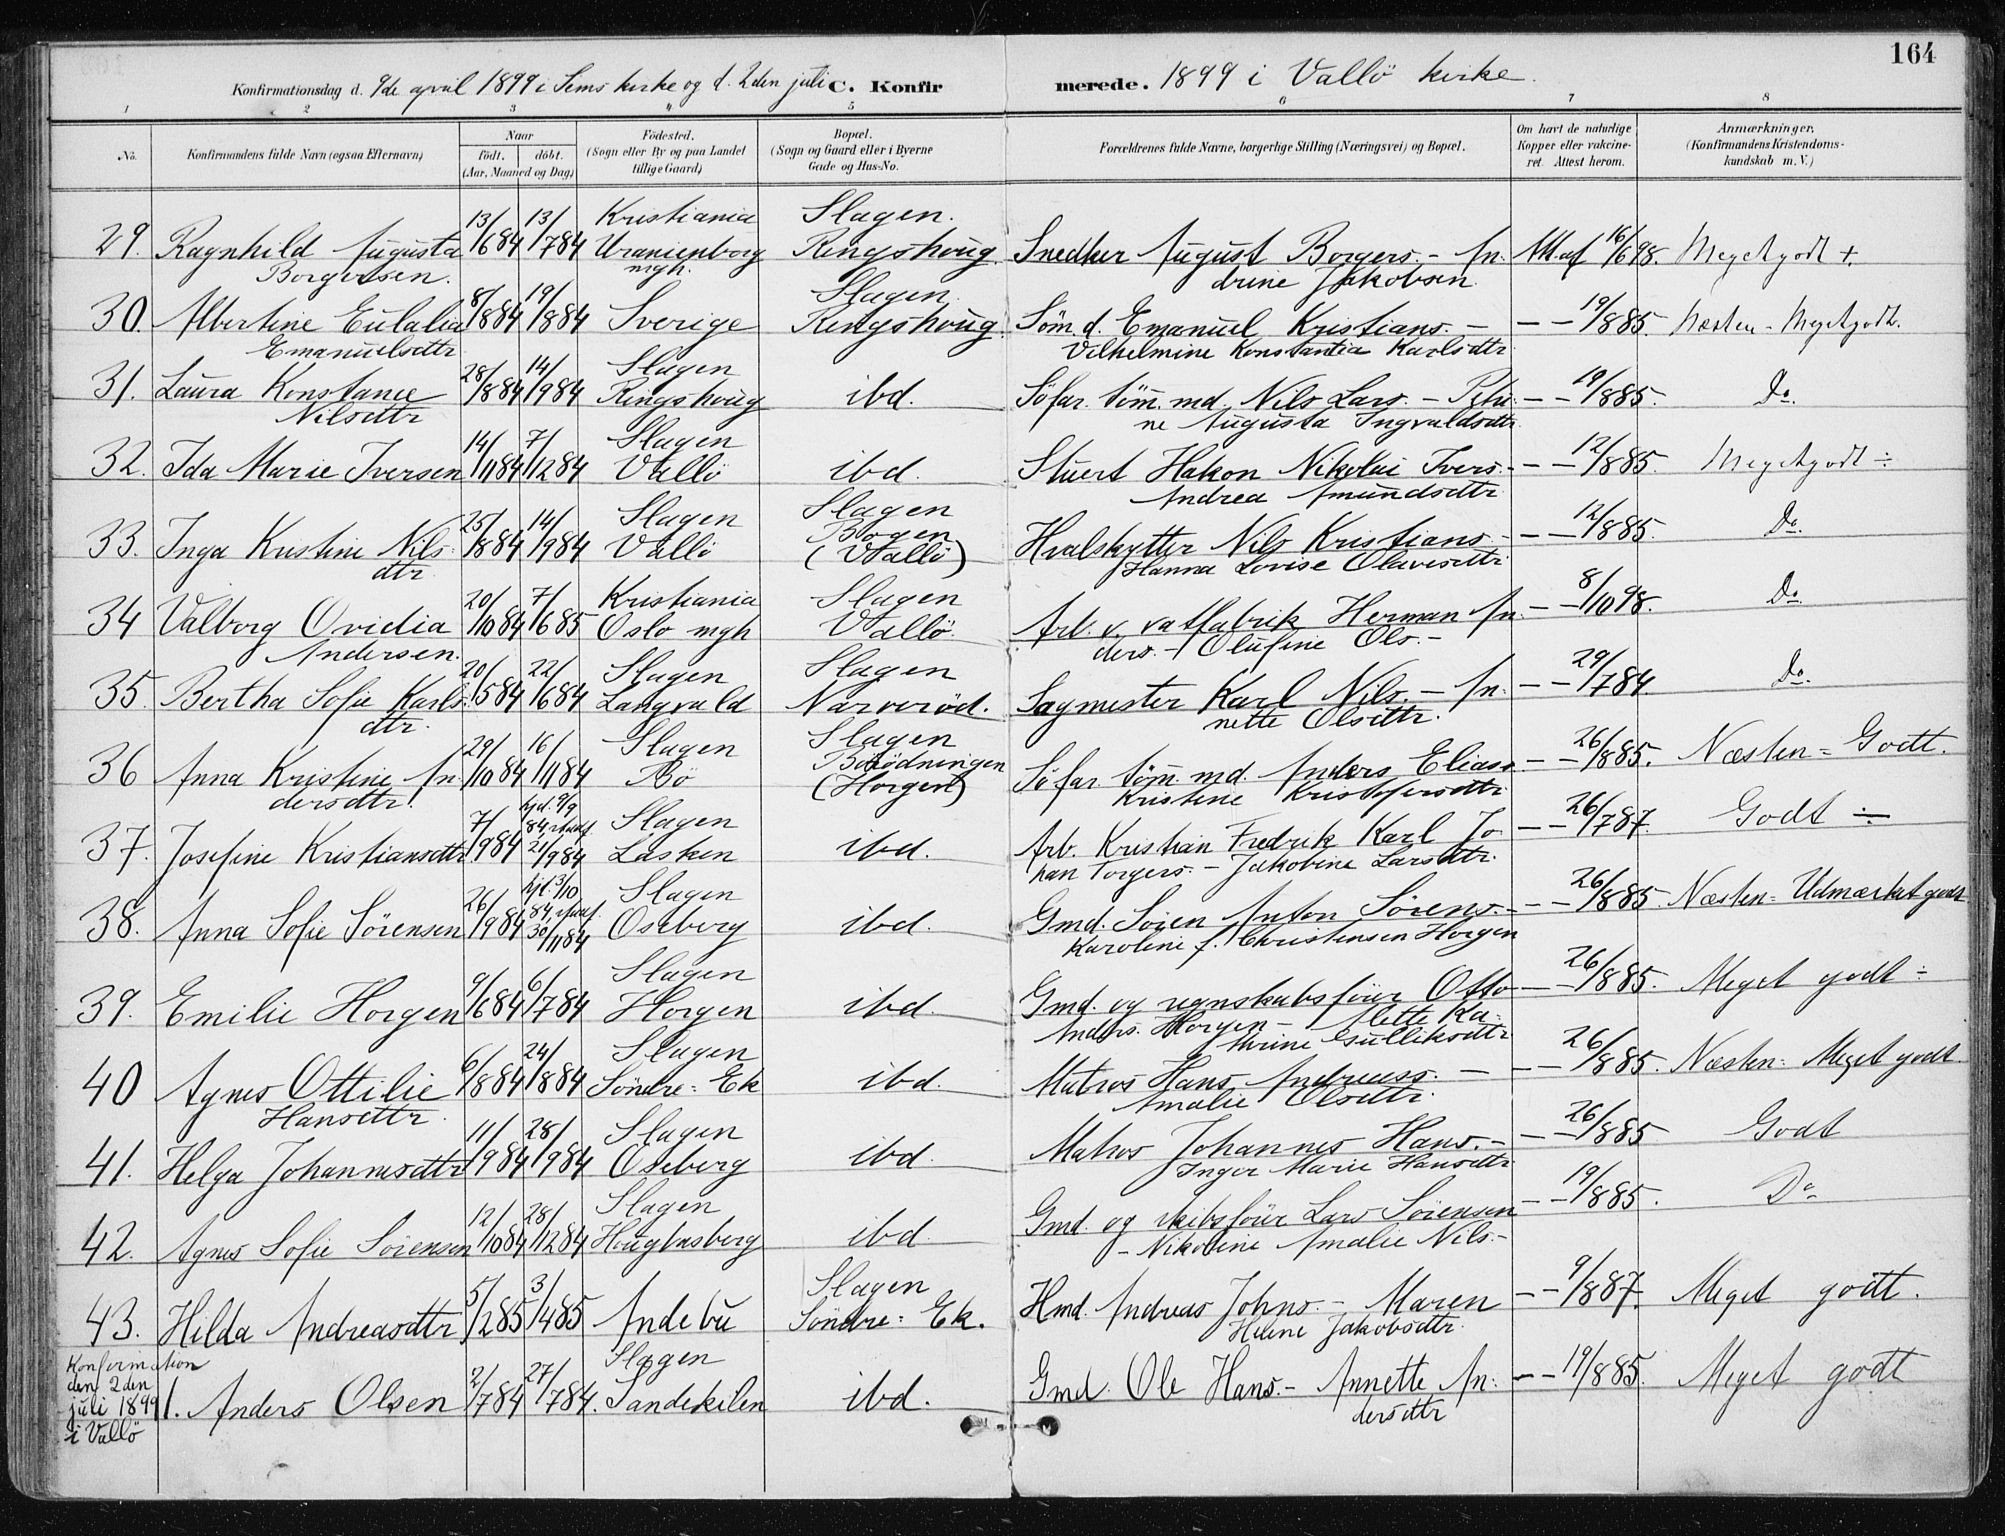 164
Konfirmationsdag d. 9de april 1899 i Sems kirke og d. 2den juli C. Konfirmerede. 1899 i Vallö kirke.
1 2 3 4 5 6 7 8
No. Konfirmandens fulde Navn (ogsaa Efternavn) Naar födt. döbt. (Aar, Maaned og Dag) Födested. (Sogn eller By og paa Landet tillige Gaard) Bopæl. (Sogn og Gaard eller i Byerne Gade og Hus-No. Forældrenes fulde Navne, borgerlige Stilling (Næringsvei) og Bopæl. Om havt de naturlige Kopper eller vakcineret. Attest herom. Anmærkninger. (Konfirmandens Kristendomskundskab m. V.)
29. Ragnhild Augusta Borgersen. 13/6 84 13/7 84 Kristiania Uranienborg mgh. Slagen. Ringshoug. Snedker August Borgers. - Andrine Jakobsen. Att. af 16/6 98. Megetgodt +.
30. Albertine Eulalia Emanuelsdtr 8/8 84 19/8 84 Sverige Slagen. Ringshoug. Töm. d. Emanuel Kristians. - Vilhelmine Konstantia Karlsdtr. - - 19/8 85. Næsten = Megetgodt.
31. Laura Konstance Nilsdtr 28/8 84 14/9 84 Slagen Ringshoug ibd. Söfar. töm. md. Nils Lars. - Petrine Augusta Ingvaldsdtr. - - 19/8 85. Do.
32. Ida Marie Iversen 14/11 84 7/12 84 Slagen Vallö ibd. Stuert Hakon Nikolai Ivers. - Andrea Amundsdtr. - - 12/8 85. Megetgodt ÷
33. Inga Kristine Nilsdtr. 25/8 84 14/9 84 Slagen Vallö Slagen Bogen (Vallö) Hvalskytter Nils Kristians. - Hanna Lovise Olavesdtr. - - 12/8 85. Do.
34 Valborg Ovidia Andersen. 20/10 84 7/6 85 Kristiania Oslo mgh Slagen Vallö. Arb. v. vatfabrik Herman Anders. - Olufine Ols. - - - 8/10 98. Do.
35. Bertha Sofie Karlsdtr. 20/5 84 22/6 84 Slagen Langvald Slagen Narveröd. Sagmester Karl Nils. - Annette Olsdtr. - - 29/7 84 Do.
36 Anna Kristine Andersdtr. 29/10 84 16/11 84 Slagen Bö Slagen Börödningen (Horgen) Söfar. töm. md. Anders Elias. - Kristine Kristofersdtr. - - 26/8 85. Næsten = Godt.
37. Josefine Kristiansdtr 7/9 84 hjd. 9/9 84, stadf. 21/9 84 Slagen Lasken ibd. Arb. Kristian Fredrik Karl Johan Torgers. - Jakobine Larsdtr. - - 26/7 87. Godt ÷
38. Anna Sofie Sörensen 26/9 84 hjd. 3/10 84, stadf. 30/11 84 Slagen Oseberg ibd. Gmd. Sören Anton Sörens. - Karoline f. Christensen Horgen - - 26/8 85. Næsten = Udmærket godt
39. Emilie Horgen 9/6 84 6/7 84 Slagen Horgen ibd. Gmd. og regnskabsförer Otto Anders. Horgen - Mette Kathrine Gulliksdtr - - 26/8 85. Meget godt ÷
40 Agnes Ottilie Hansdtr. 6/8 84 24/8 84 Slagen Söndre = Ek ibd. Matros Hans Andreass. - Amalie Olsdtr. - - 26/8 85. Næsten = Meget godt.
41. Helga Johannesdtr 11/9 84 28/9 84 Slagen Oseberg ibd. Matros Johannes Hans. - Inger Marie Hansdtr - - 26/8 85 Godt
42. Agnes Sofie Sörensen 12/10 84 28/12 84 Slagen Hougbasberg ibd. Gmd. og skibsförer Lars Sörensen - Nikoline Amalie Nils. - - - 19/8 85. Do
43. Hilda Andreasdtr 5/2 85 3/4 85 Andebu Slagen Söndre = Ek. Hmd. Andreas Johns. - Maren Helene Jakobsdtr. - - 9/8 87. Meget godt.
Konfirmation den 2den juli 1899 i Vallö
1. Anders Olsen 2/7 84 27/7 84. Slagen Sandekilen ibd. Gmd. Ole Hans. - Annette Andersdtr - - 19/8 85. Meget godt